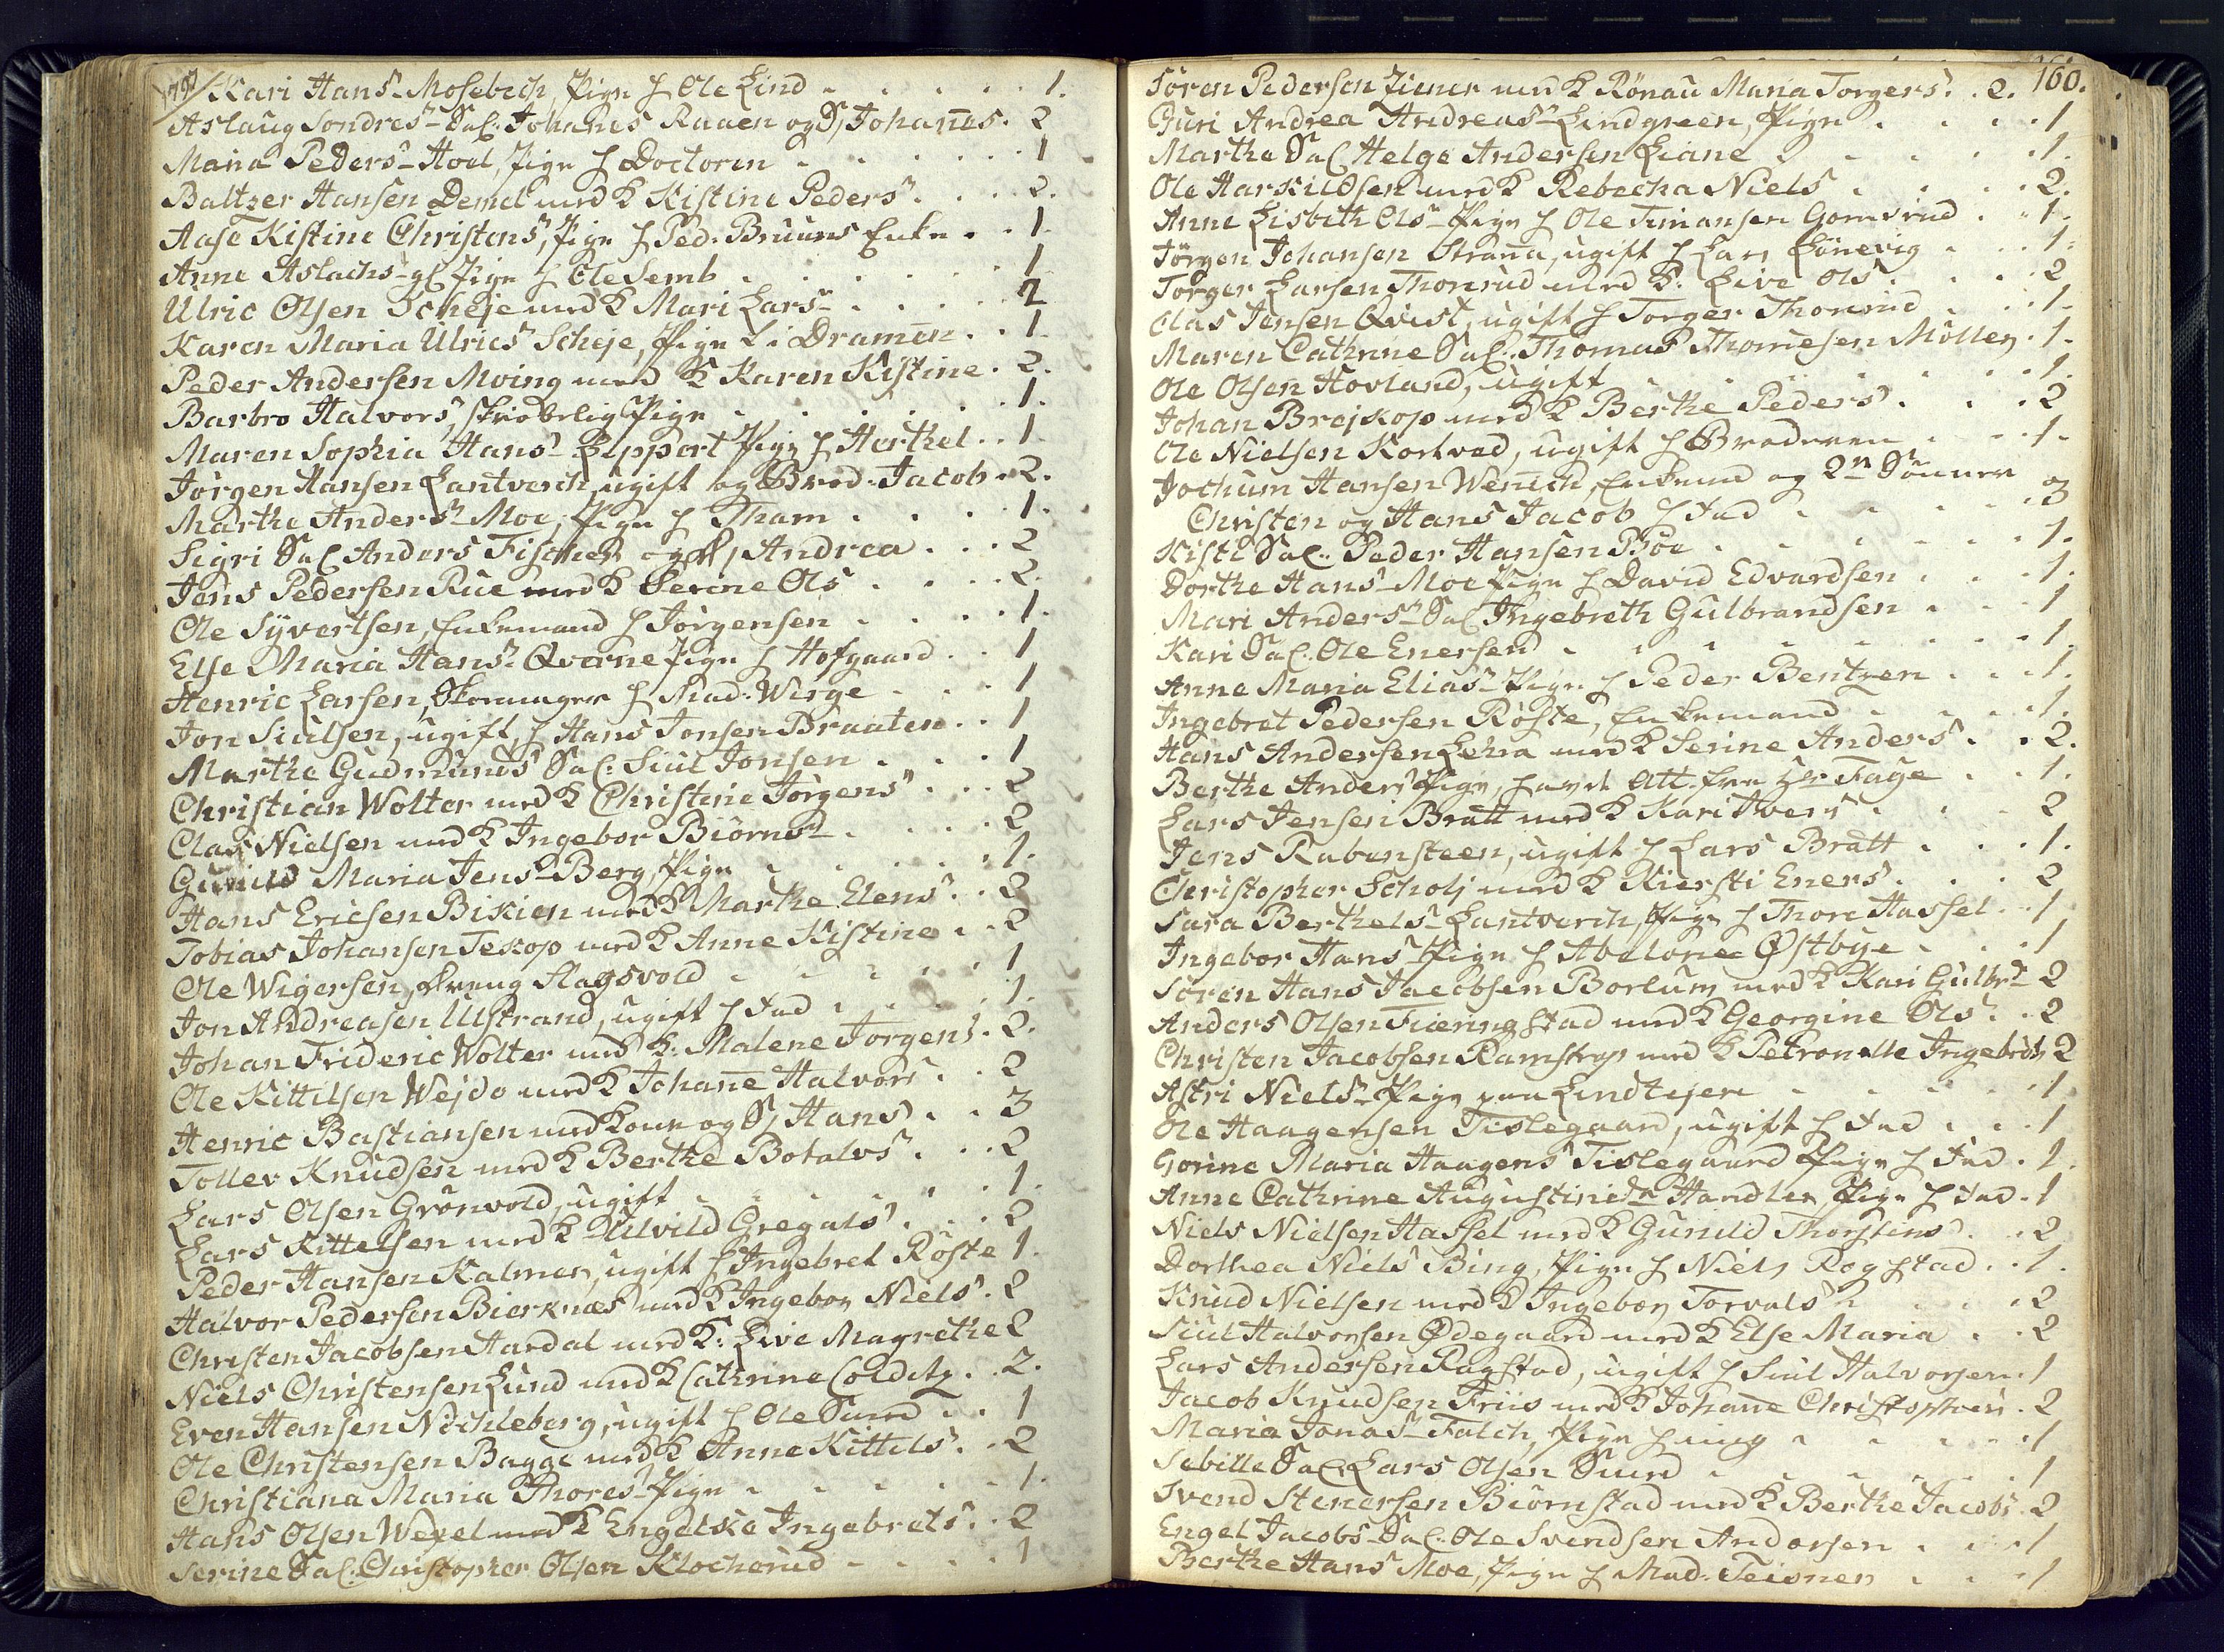 1797/ Kari Hansd Mosebech, Pige h Ole Lind - . . . . 1.
Aslaug Sondresd Sal. Johanes Raaen og S, Johanes. 2
Maria Pedersd Hoel, Pige h Doctoren - . . . . 1
Baltzer Hansen Demel med K Kistine Pedersd . . . 2.
Aase Kistine Christensd, Pige h Ped. Bruuns Enke . . 1.
Anne Aslachsd gl Pige h Ole Semb . . . . . 1
Ulric Olsen Scheje med K Mari Larsd . . . . 2
Karen Maria Ulricsd Scheje, Pige h i Dramen . . 1.
Peder Andersen Moing med K Karen Kistine . 2.
Barbro Halvorsd, skrøbelig Pige . . . . . 1.
Maren Sophia Hansd Leppert Pige h Herthel . . 1.
Jörgen Hansen Lantverch, ugift og Brod. Jacob . 2.
Marthe Andersd Moe, Pige h Tham . . . . 1.
Sigri Sal Anders Fischer og D, Andrea . . . 2
Jens Pedersen Rue med K Serine Ols . . . . 2.
Ole Syvertsen, Enkemand h Jörgensen . . . . 1.
Else Maria Hansd Qverne Pige h Hofgaard . . 1
Henric Larsen, Skomager h Mad. Wirge . . . 1
Jon Siulsen, ugift, h Hans Jonsen Braaten . . 1
Marthe Gudmunds Sal. Siul Jonsen . . . 1
Christian Wolter med K Christine Jörgensd . . . 2
Clas Nielsen med K Ingebor Biörnsd . . . . 2
Gunild Maria Jensd Berg, Pige . . . . . 1.
Hans Ericsen Bikien med K Marthe Elensd . . 2
Tobias Johansen Teskop med K Anne Kistine . . 2
Ole Wigersen, dreng Slagsvold . . . . . 1
Jon Andreasen Ulstrand, ugift h Fad . . . . 1.
Johan Frideric Wolter med K. Malene Jorgens . 2.
Ole Kittilsen Wejdo med K Johane Halvors . . 2
Henric Bastiansen med Kone og S, Hans . . 3
Tollev Knudsen med K Berthe Botolvs . . . 2
Lars Olsen Grönvold, ugift . . . . . . 1.
Lars Kittelsen med K Ulvild Gregats . . . 2
Peder Hansen Kalmer, ugift h Ingebret Röste 1.
Halvor Pedersen Bierknæs med K Ingebor Niels . 2
Christen Jacobsen Aardal med K. Live Magrethe 2
Niels Christensen Lund med K Cathrine Colditz . . 2.
Even Hansen Nichleberg, ugift h Ole Smed . . 1
Ole Christensen Bagge med K Anne Kittels . . 2
Christiana Maria Thoresd Pige . . . . . 1.
Hans Olsen Wexel med K Engelske Ingebrets . . 2
Serine Sal. Christopher Olsen Klocherud - . . . 1
160.
Sören Pedersen Ziener med K Rönau Maria Torgers . . 2.
Guri Andrea Andreasd Lindgreen, Pige . . . . 1
Marthe Sal Helge Andersen Liane . . . . . 1.
Ole Harkildsen med K Rebecha Niels . . . . 2.
Anne Lisbeth Olsd Pige h Ole Timansen Gomsrud . . 1.
Jörgen Johansen Strana, ugift h Lars Lönevig . . . 1.
Torger Larsen Thorerud med K. Live Ols . . . 2
Olas Jensen Qvist, ugift h Torger Thorerud . . . 1.
Maren Cathrine Sal. Thomas Thomesen Möller . 1.
Ole Olsen Hovland, ugift . . . . . . . 1.
Johan Brejskop med K Berthe Peders . . . 2
Ole Nielsen Kortved, ugift h Broderen . . . 1.
Jochum Hansen Wenich, Enkemd og 2n Sönner
Christen og Hans Jacob h Fad . . . . . 3
Kisti Sal. Peder Hansen Böe . . . . . . 1.
Dorthe Hansd Moe Pige h David Edvardsen . . . 1.
Mari Andersd Sal Ingebreth Gulbrandsen . . . 1
Kari Sal. Ole Enersen . . . . . . . . 1.
Anne Maria Eliasd Pige h Peder Bentzen . . . 1.
Ingebret Pedersen Röste, Enkemand . . . . . 1.
Hans Andersen Lehra med K Serine Anders . . 2.
Berthe Andersd Pige, havt Att. fra Hr Fage . . 1.
Lars Jensen Bratt med K Kari Ivers . . . 2
Jens Rubensteen, ugift h Lars Bratt . . . 1.
Christopher Scholj med K Kiersti Eners . . . 2
Sara Berthelsd Lantverch, Pige h Thore Hassel . . 1
Ingebor Hansd Pige h Abelone Østbye . . . . 1
Sören Hans Jacobsen Borlum med K Kari Gulbrd 2
Anders Olsen Fieringstad med K Georgine Ols . . 2
Christen Jacobsen Ramskop med K Petronelle Ingebrets 2
Astri Nielsd Pige paa Lindtejen . . . . . 1
Ole Haagensen Tislegaard, ugift h Fad . . . 1
Gorine Maria Haagensd Tislegaard Pige h Fad . 1.
Anne Cathrine Augustinid Handler, Pige h Fad . 1
Niels Nielsen Hassel med K Gunild Thorstens . . 2
Dorthea Nielsd Bing, Pige h Niels Rogstad . . 1.
Knud Nielsen med K Ingebor Torvals . . . . 2
Siul Halvorsen Ødegaard med K Else Maria . . 2
Lars Andersen Ragstad, ugift h Siul Halvorsen . 1
Jacob Knudsen Friis med K Johane Christophers . 2
Maria Jonasd Falch, Pige h mig . . . . . 1
Sebille Sal. Lars Olsen Smed . . . . . . 1
Svend Stenersen Biörnstad med K Berthe Jacobs . 2
Engel Jacobsd Sal. Ole Svendsen Andorsen . . . 1
Berthe Hansd Moe, Pige h Mad. Teisner . . . 1